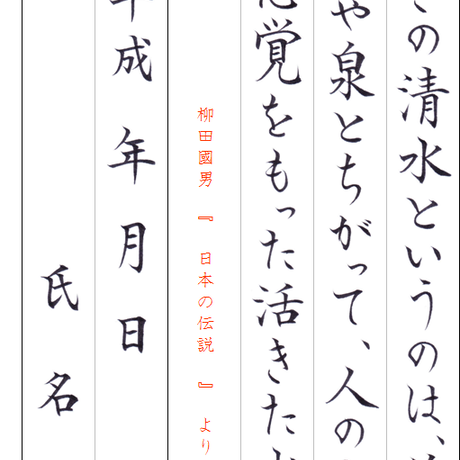 この清水というのは、
や泉とちがって、人の
覚をもった活きた
柳田國男 『日本の伝説』 より
平成 年 月 日
氏 名